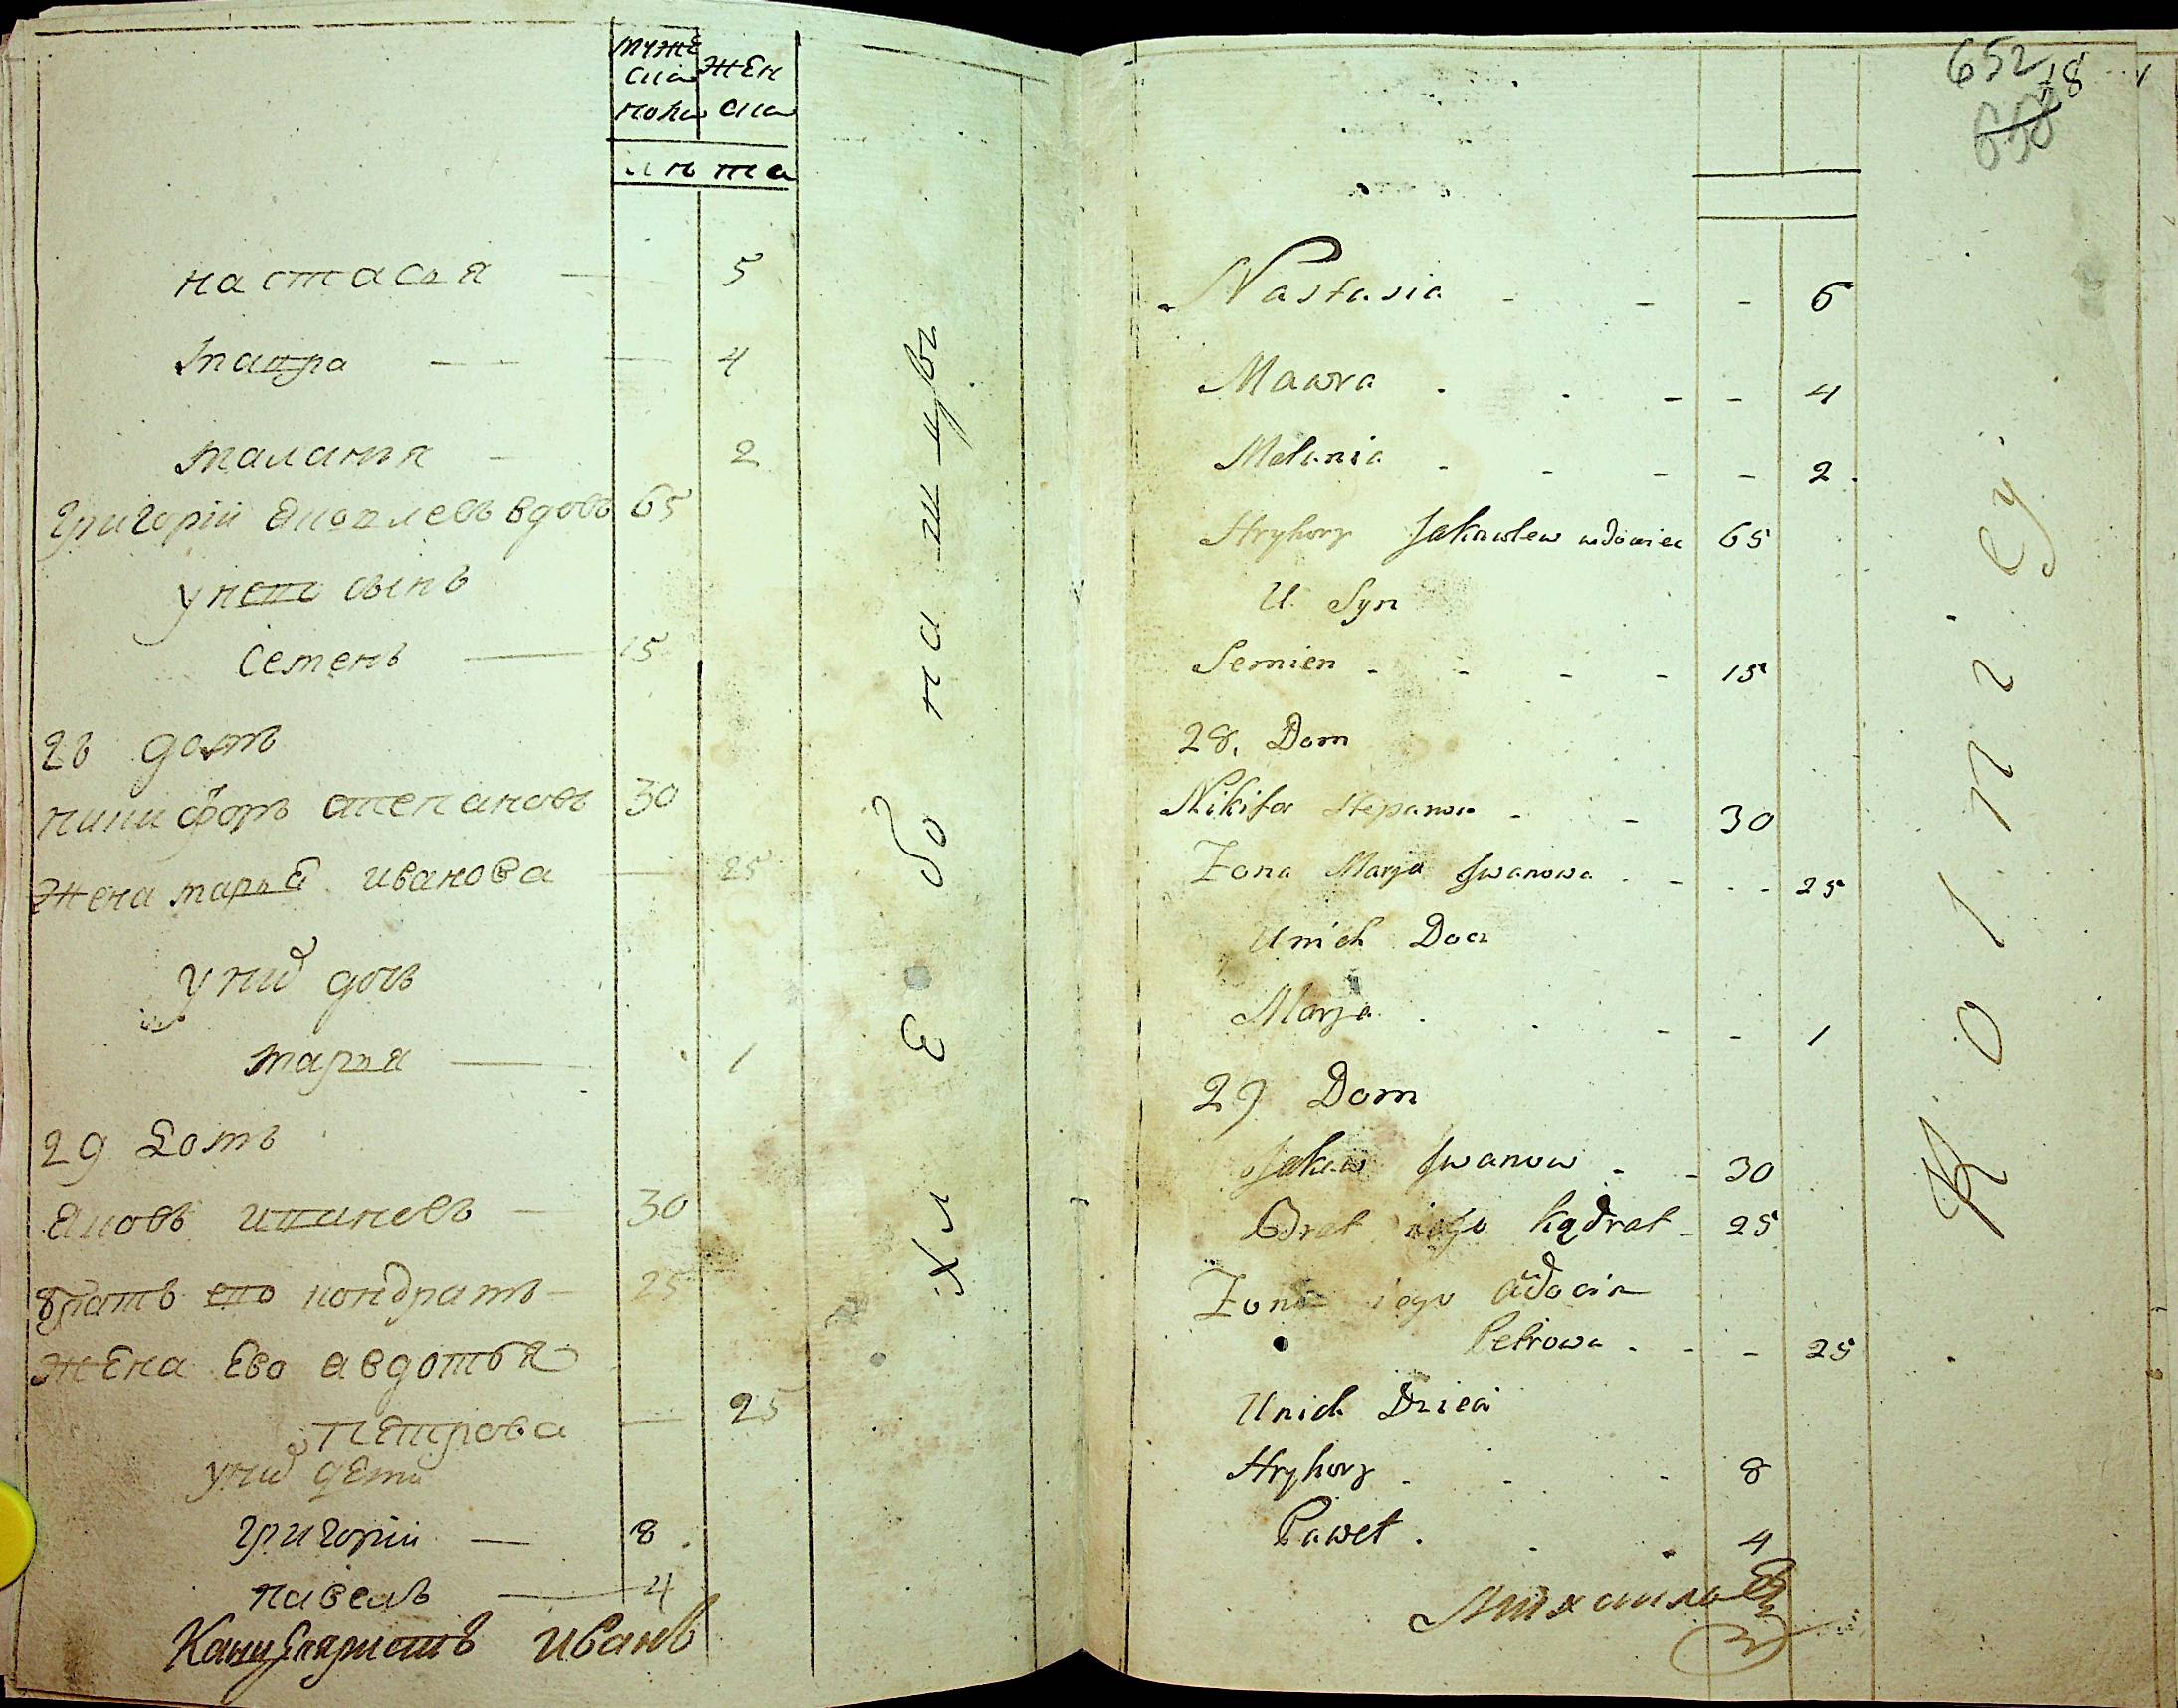 мужеска пола
женска
лѣта
настасья — 5
мавра — — — 4
маланья — 2
григорій яковлевъ вдовъ 65
у нево сынъ
семенъ — 15
28 домъ
никифоръ степановъ 30
жена марья иванова — 25
у нихъ дочь
марья — 1
29 домъ
яковъ ивановъ — 30
братъ ево кондратъ — 25
жена ево авдотья
петрова — 25
у нихъ дети
григорій — 8
павелъ — 4
Канцеляристъ Иванъ
652
18
658
Nastasia - - - 5
Mawra . . - - 4
Melania - - - - 2.
Hryhory Jakowlew wdowiec 65
U. Syn
Semien - - - - 15
28. Dom
Nikifor Stepanow - - 30
Żona Marja Jwanowa . - . - 25
Unich Doci
Marja . . - - 1
29 Dom
Jakow Jwanow - - 30
Brat iego Kądrat - 25
Żona iego Audocia
Petrowa . - - 25
Unich Dzieci
Hryhory . - - 8
Paweł . . . 4
Михаилъ